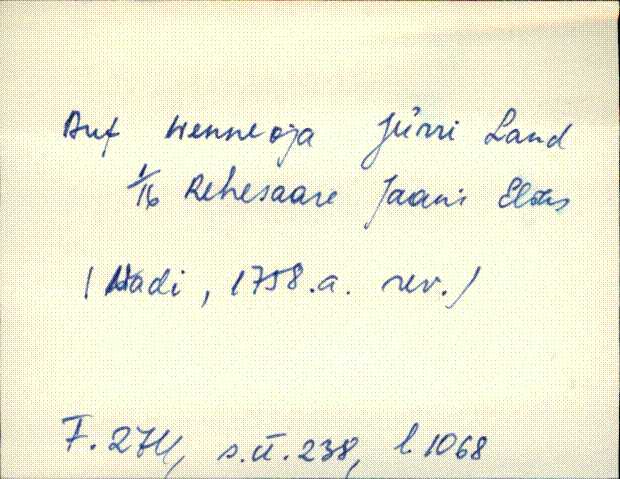 Auf Wenneoja Jürri Land
1/16 Rehesaare Jaani Elias
(Hadi, 1758.a. rev.)
F. 274, s.ü. 238, l 1068